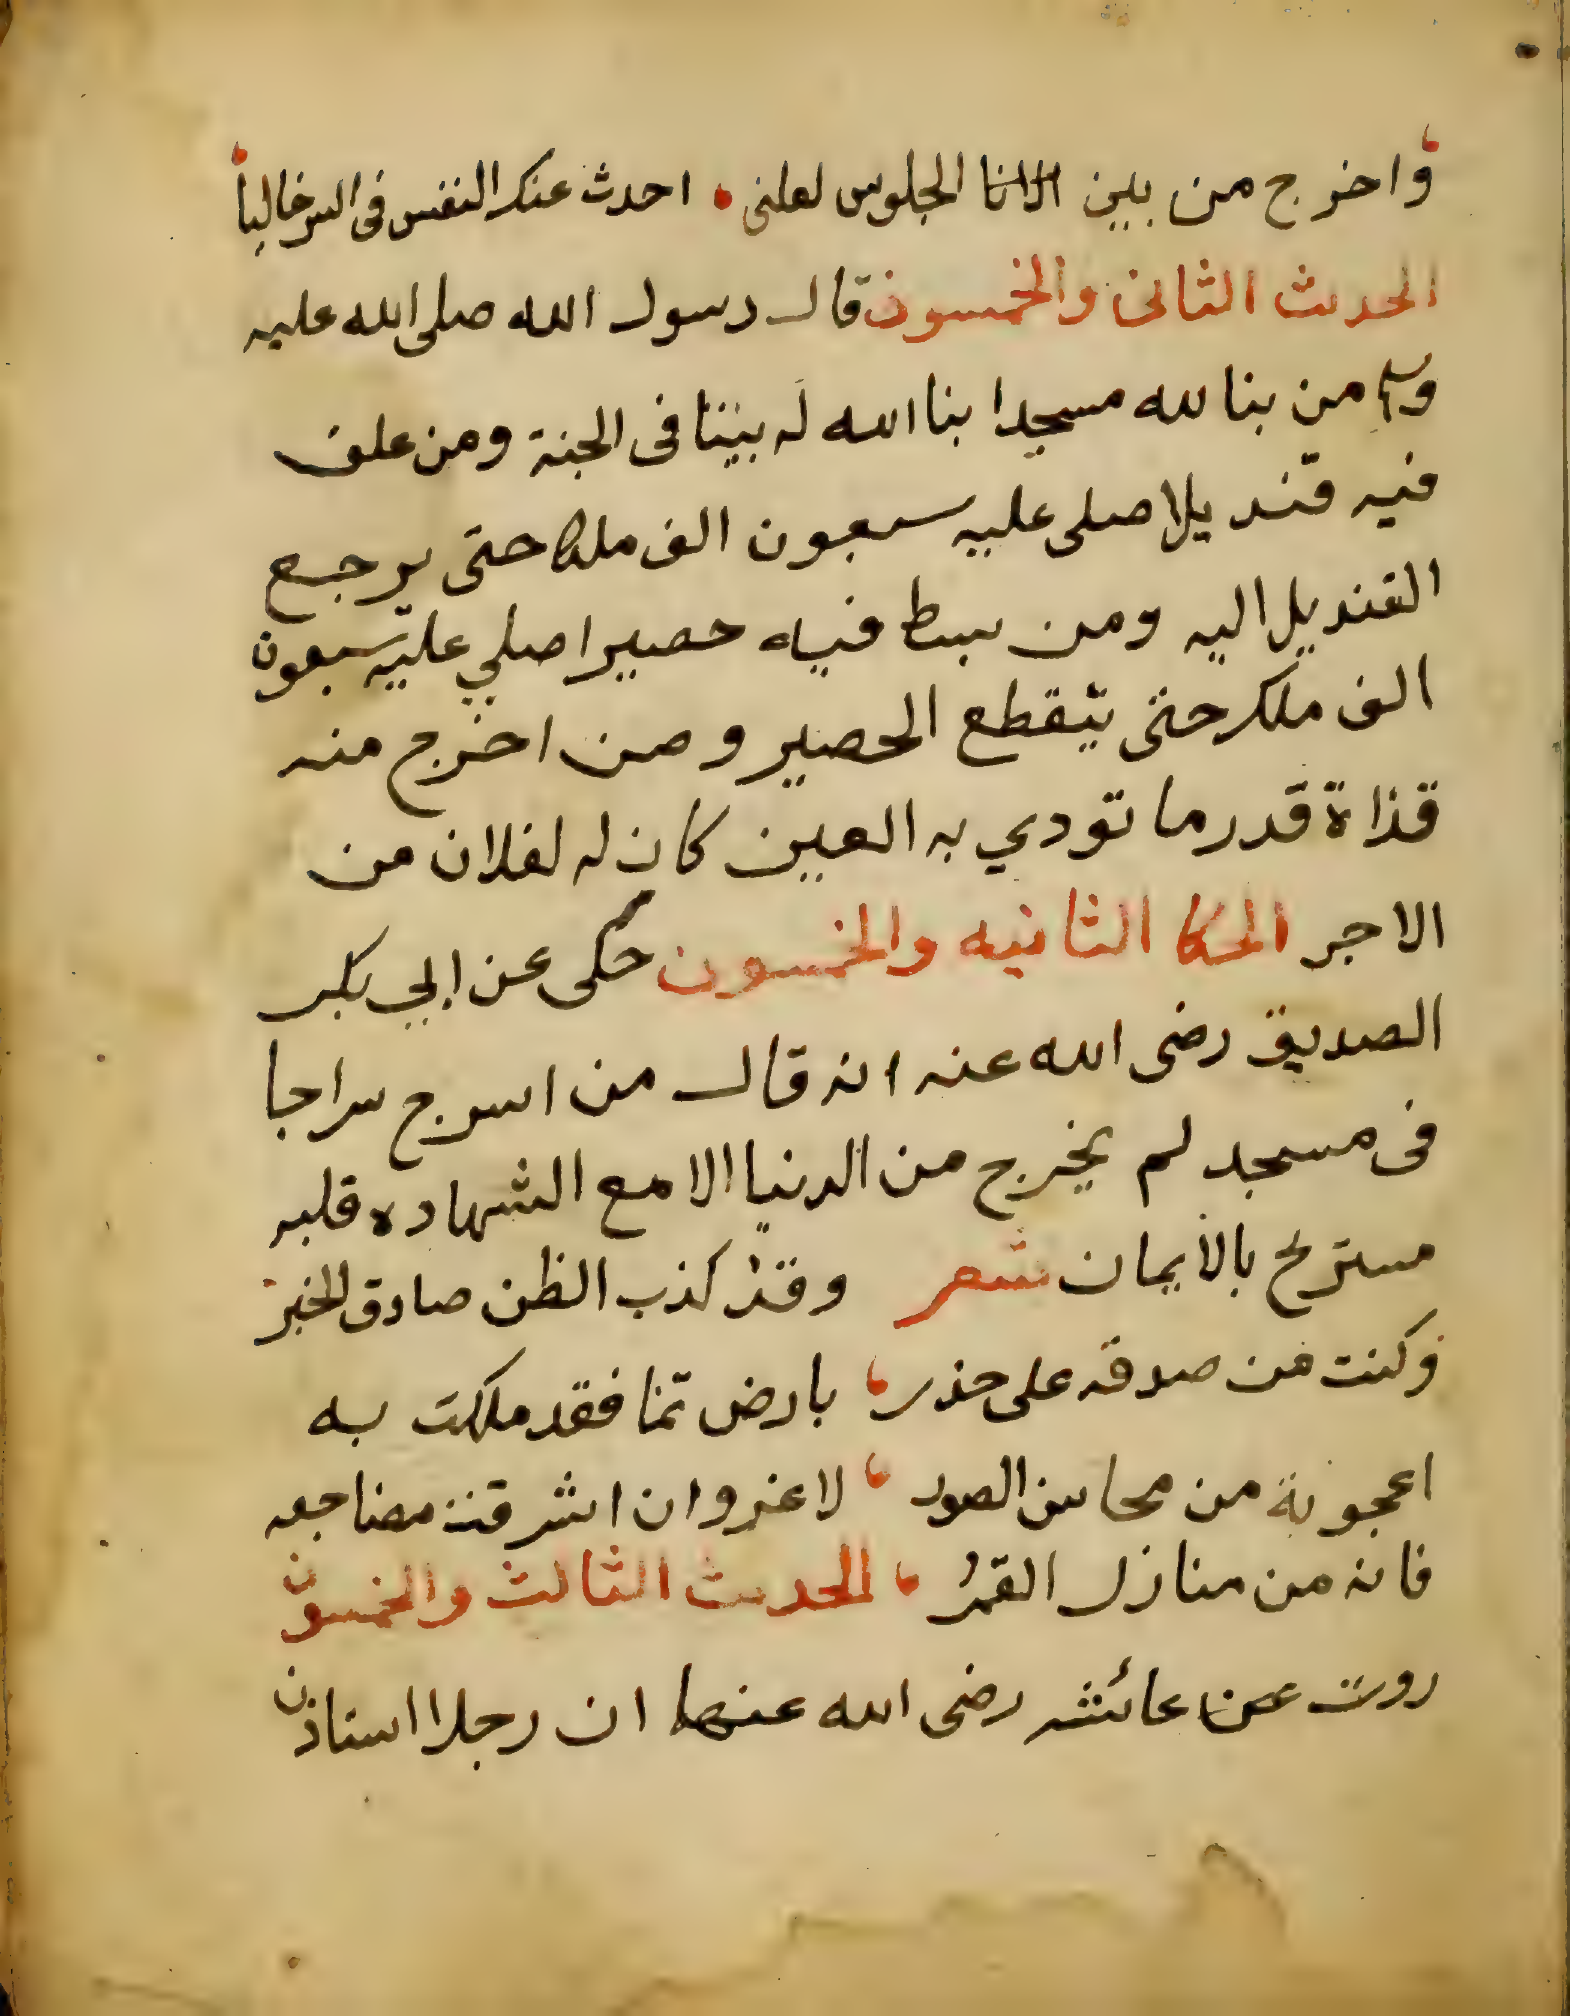 واخرج من بين الجلوس لعلنى احدث عنك النفس فى السر خاليا
الحديث الثانى والخمسون قال رسول الله صلى الله عليه
وسلم من بنا لله مسجدا بنا الله له بيتا فى الجنة ومن علق
فيه قنديلا صلى عليه سبعون الف ملك حتى يرجع
القنديل اليه ومن بسط فيه حصيرا صلي عليه سبعون
الف ملك حتى يتقطع الحصير ومن اخرج منه
قذاة قدر ما تودي به العين كان له لفلان من
الاجر الحكا الثانيه والخمسون حكى عن ابي بكر
الصديق رضى الله عنه انه قال من اسرج سراجا
فى مسجد لم يخرج من الدنيا الا مع الشهاده قلبه
مستريح بالايمان شعر وقد كذب الظن صادق الخبر
وكنت من صدقه على حذر بارض تمنا فقد ملكت به
اعجوبة من محاسن الصور لا غروان اشرقت مضاجعه
فانه من منازل القمر الحديث الثالث والخمسون
روت عن عائشه رضى الله عنها ان رجلا استاذن